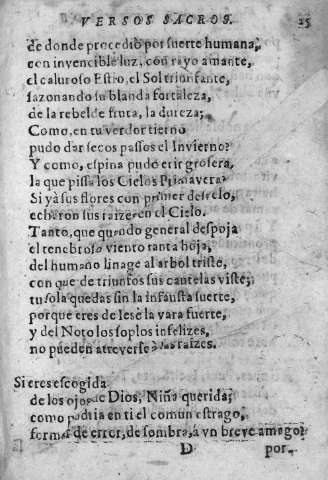 VERSOS SACROS. 25
de donde procedió por suerte humana,
con invencible luz, con rayo amante,
el caluroso Estio, el Sol triunfante,
sazonando su blanda fortaleza,
de la rebelde fruta, la dureza;
Como, en tu verdor tierno
pudo dar secos passos el Invierno?
Y como, espina pudo erir grosera,
la que pissa los Cielos Primavera?
Si yà sus flores con primer desvelo,
echeron sus raizes en el Cielo.
Tanto, que quando general despoja
el tenebroso viento tanta hoja,
del humano linage al arbol triste,
con que de triunfos sus cautelas viste;
tu sola quedas sin la infausta suerte,
porque eres de Iesè la vara fuerte,
y del Noto los soplos infelizes,
no pueden atreverse à las raizes.
Si eres escogida
de los ojos de Dios, Niña querida;
como podria en ti el comun estrago,
formar de error, de sombra, à vn breve amago?
D por-